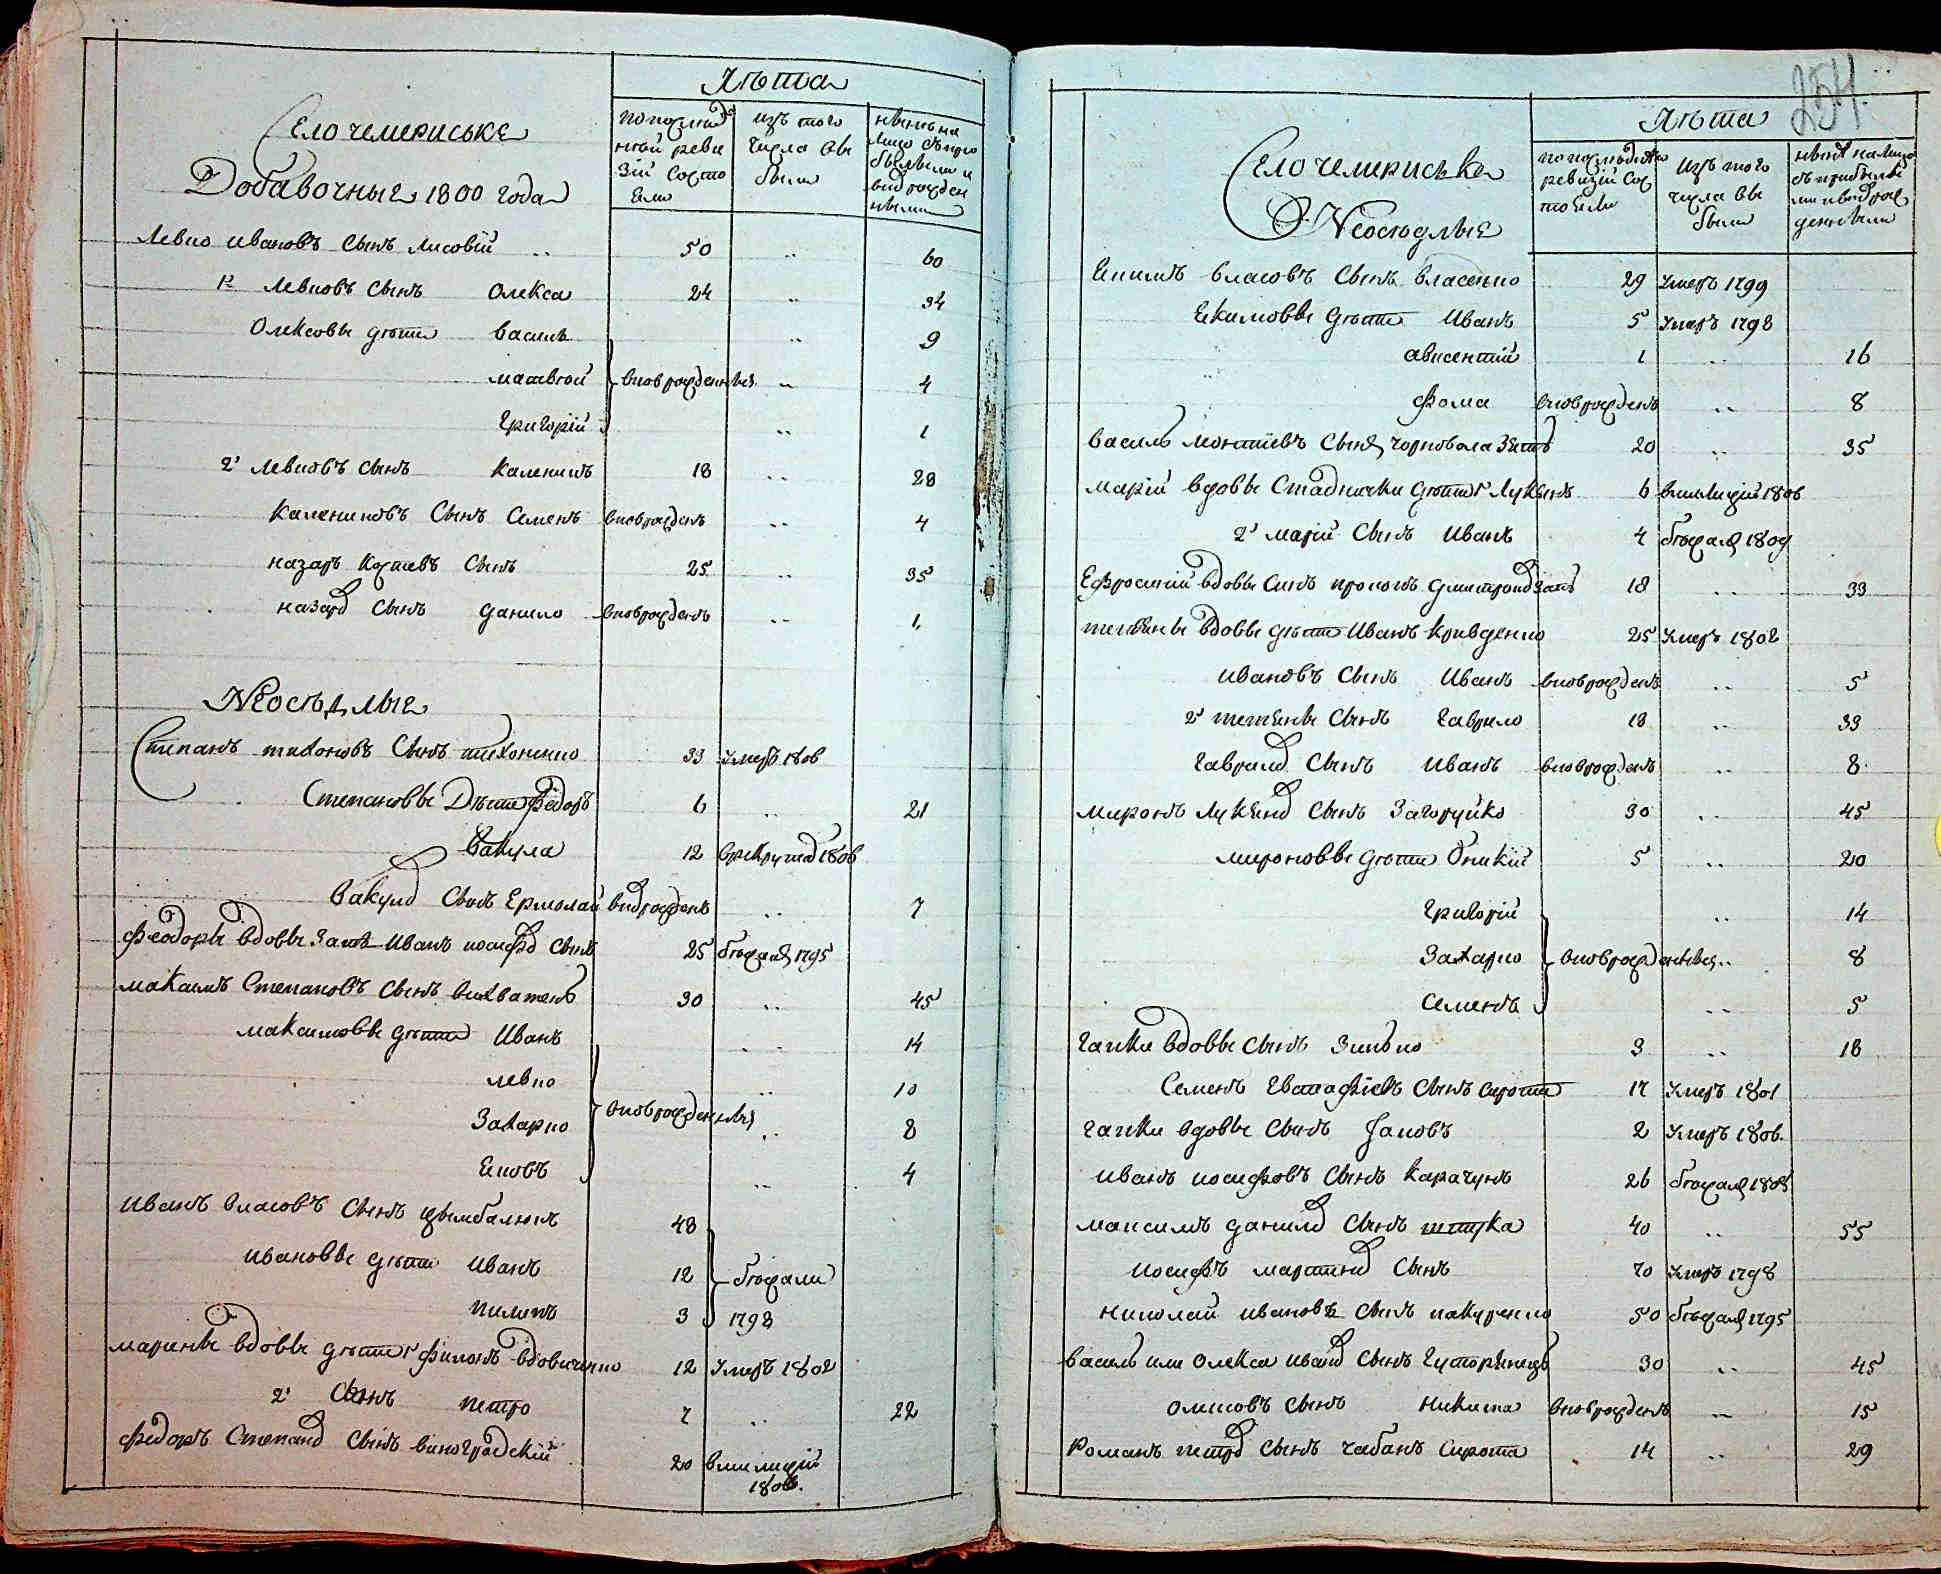 Лѣта
Село чемериське
Добавочные 1800 года
по послѣд
ней реви
зіи состо
яло
изъ того
числа вы
было
нынѣ на
лицо съ при
былыми и
вновь рожден
ными
Левко Ивановъ сынъ Лисовій 50 .. 60
1й Левковъ сынъ Олекса 24 .. 34
Олексовы дѣти Василь .. 9
Матвей вновърожденные .. 4
Григорій .. 1
2й Левковъ сынъ Каленикъ 18 .. 28
Калениковъ сынъ Семенъ вновърожденъ .. 4
Назаръ Костевъ сынъ 25 .. 35
Назаров сынъ Данило вновърожденъ .. 1
Неосѣдлые
Степанъ Тихоновъ сынъ Тихоненко 33 умеръ 1806
Степановы Дѣти Федоръ 6 .. 21
Вакула 12 врекрута 1806
Вакулов сынъ Ермолай вновърожденъ .. 7
Феодоры вдовы зать Иванъ Иосифов сынъ 25 бѣжал 1795
Максимъ Степановъ сынъ 30 .. 45
Максимовы дѣти Иванъ .. 14
Левко .. 10
Захарко вновърожденные .. 8
Яковъ .. 4
Иванъ Власовъ сынъ Цымбалюкъ 48
Ивановы дѣти Иванъ 12 бѣжали
Пилипъ 3 1798
Марины вдовы дѣти 1й Филонъ Вдовиченко 12 умеръ 1802
2й сынъ Петро 7 .. 22
Федоръ Степанов сынъ Виноградскій 20 вмилицій
1806.
254.
Лѣта
Село чемериське
Неосѣдлые
по послѣдней
ревизіи сос
тояло
изъ того
числа вы
было
нынѣ налицо
съ прибылы
ми и вновьрож
денными
Екимъ Власовъ сынъ Власенко 29 умеръ 1799
Екимовы дѣти Иванъ 5 умеръ 1798
Авксентій 1 .. 16
Фома вновърожденъ .. 8
Василь Монтіевъ сынъ Чорновола Зять 20 .. 35
Марій вдовы Стаднички дѣти 1й Лукянъ 6 вмилицій 1806
2й Марій сынъ Иванъ 4 бѣжал 1809
Ефросиніи вдовы синъ Прокопъ 18 .. 33
Тетяны вдовы дѣти Иванъ Кривденко 25 умеръ 1802
Ивановъ сынъ Иванъ вновърожденъ .. 5
2й Тетяны сынъ Гаврило 18 .. 33
Гаврилов сынъ Иванъ вновърожденъ .. 8
Миронъ Лукянов сынъ Загоруйко 30 .. 45
Мироновы дѣти Оникій 5 .. 20
Григорій .. 14
Захарко вновърожденные .. 8
Семенъ .. 5
Гапки вдовы сынъ Зинько 3 .. 18
Семенъ Евтафіевъ сынъ Сирота 17 умеръ 1801
Гапки вдовы сынъ Яковъ 2 умеръ 1806.
Иванъ Иосифовъ сынъ Карачунъ 26 бѣжал 1808
Максимъ Данилов сынъ Штука 40 .. 55
Иосифъ Мартинов сынъ 70 умеръ 1798
Николай Ивановъ сынъ Пакуренко 50 бѣжал 1795
Василь или Олекса Иванов сынъ 30 .. 45
сынъ Никита вновърожденъ .. 15
Романъ Петров сынъ Чабанъ Сирота 14 .. 29